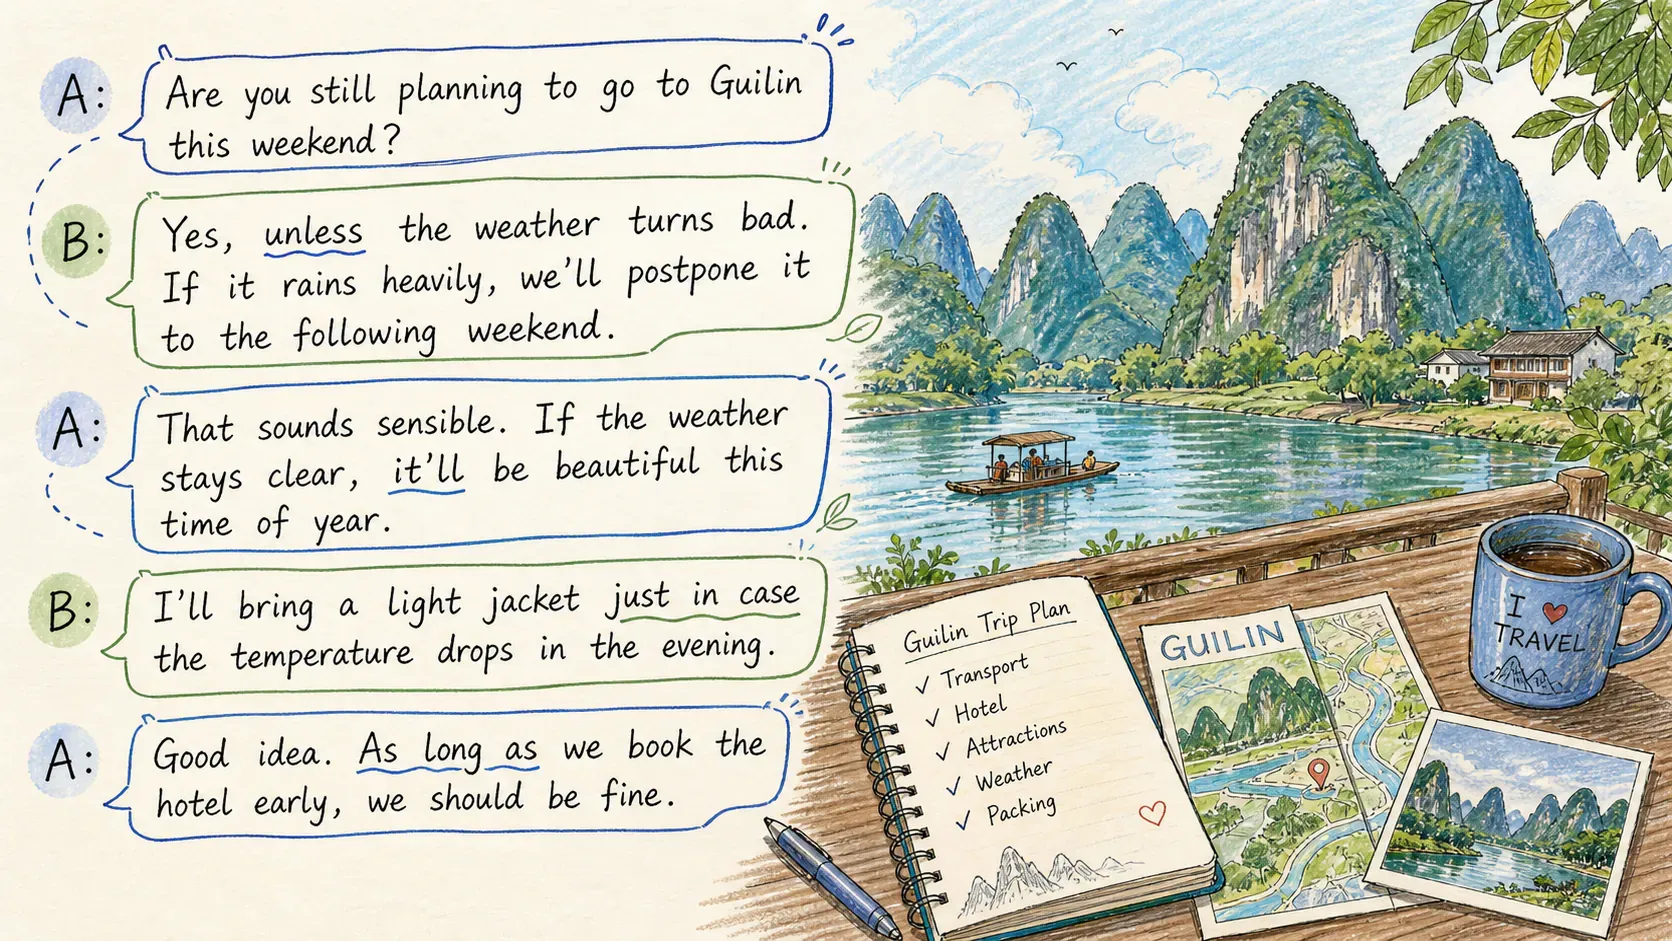 A:
Are you still planning to go to Guilin
this weekend?
B:
Yes, unless the weather turns bad.
If it rains heavily, we'll postpone it
to the following weekend.
A:
That sounds sensible. If the weather
stays clear, it'll be beautiful this
time of year.
B:
I'll bring a light jacket just in case
the temperature drops in the evening.
A:
Good idea. As long as we book the
hotel early, we should be fine.
Guilin Trip Plan
✓ Transport
✓ Hotel
✓ Attractions
✓ Weather
✓ Packing
GUILIN
I ❤ 
TRAVEL